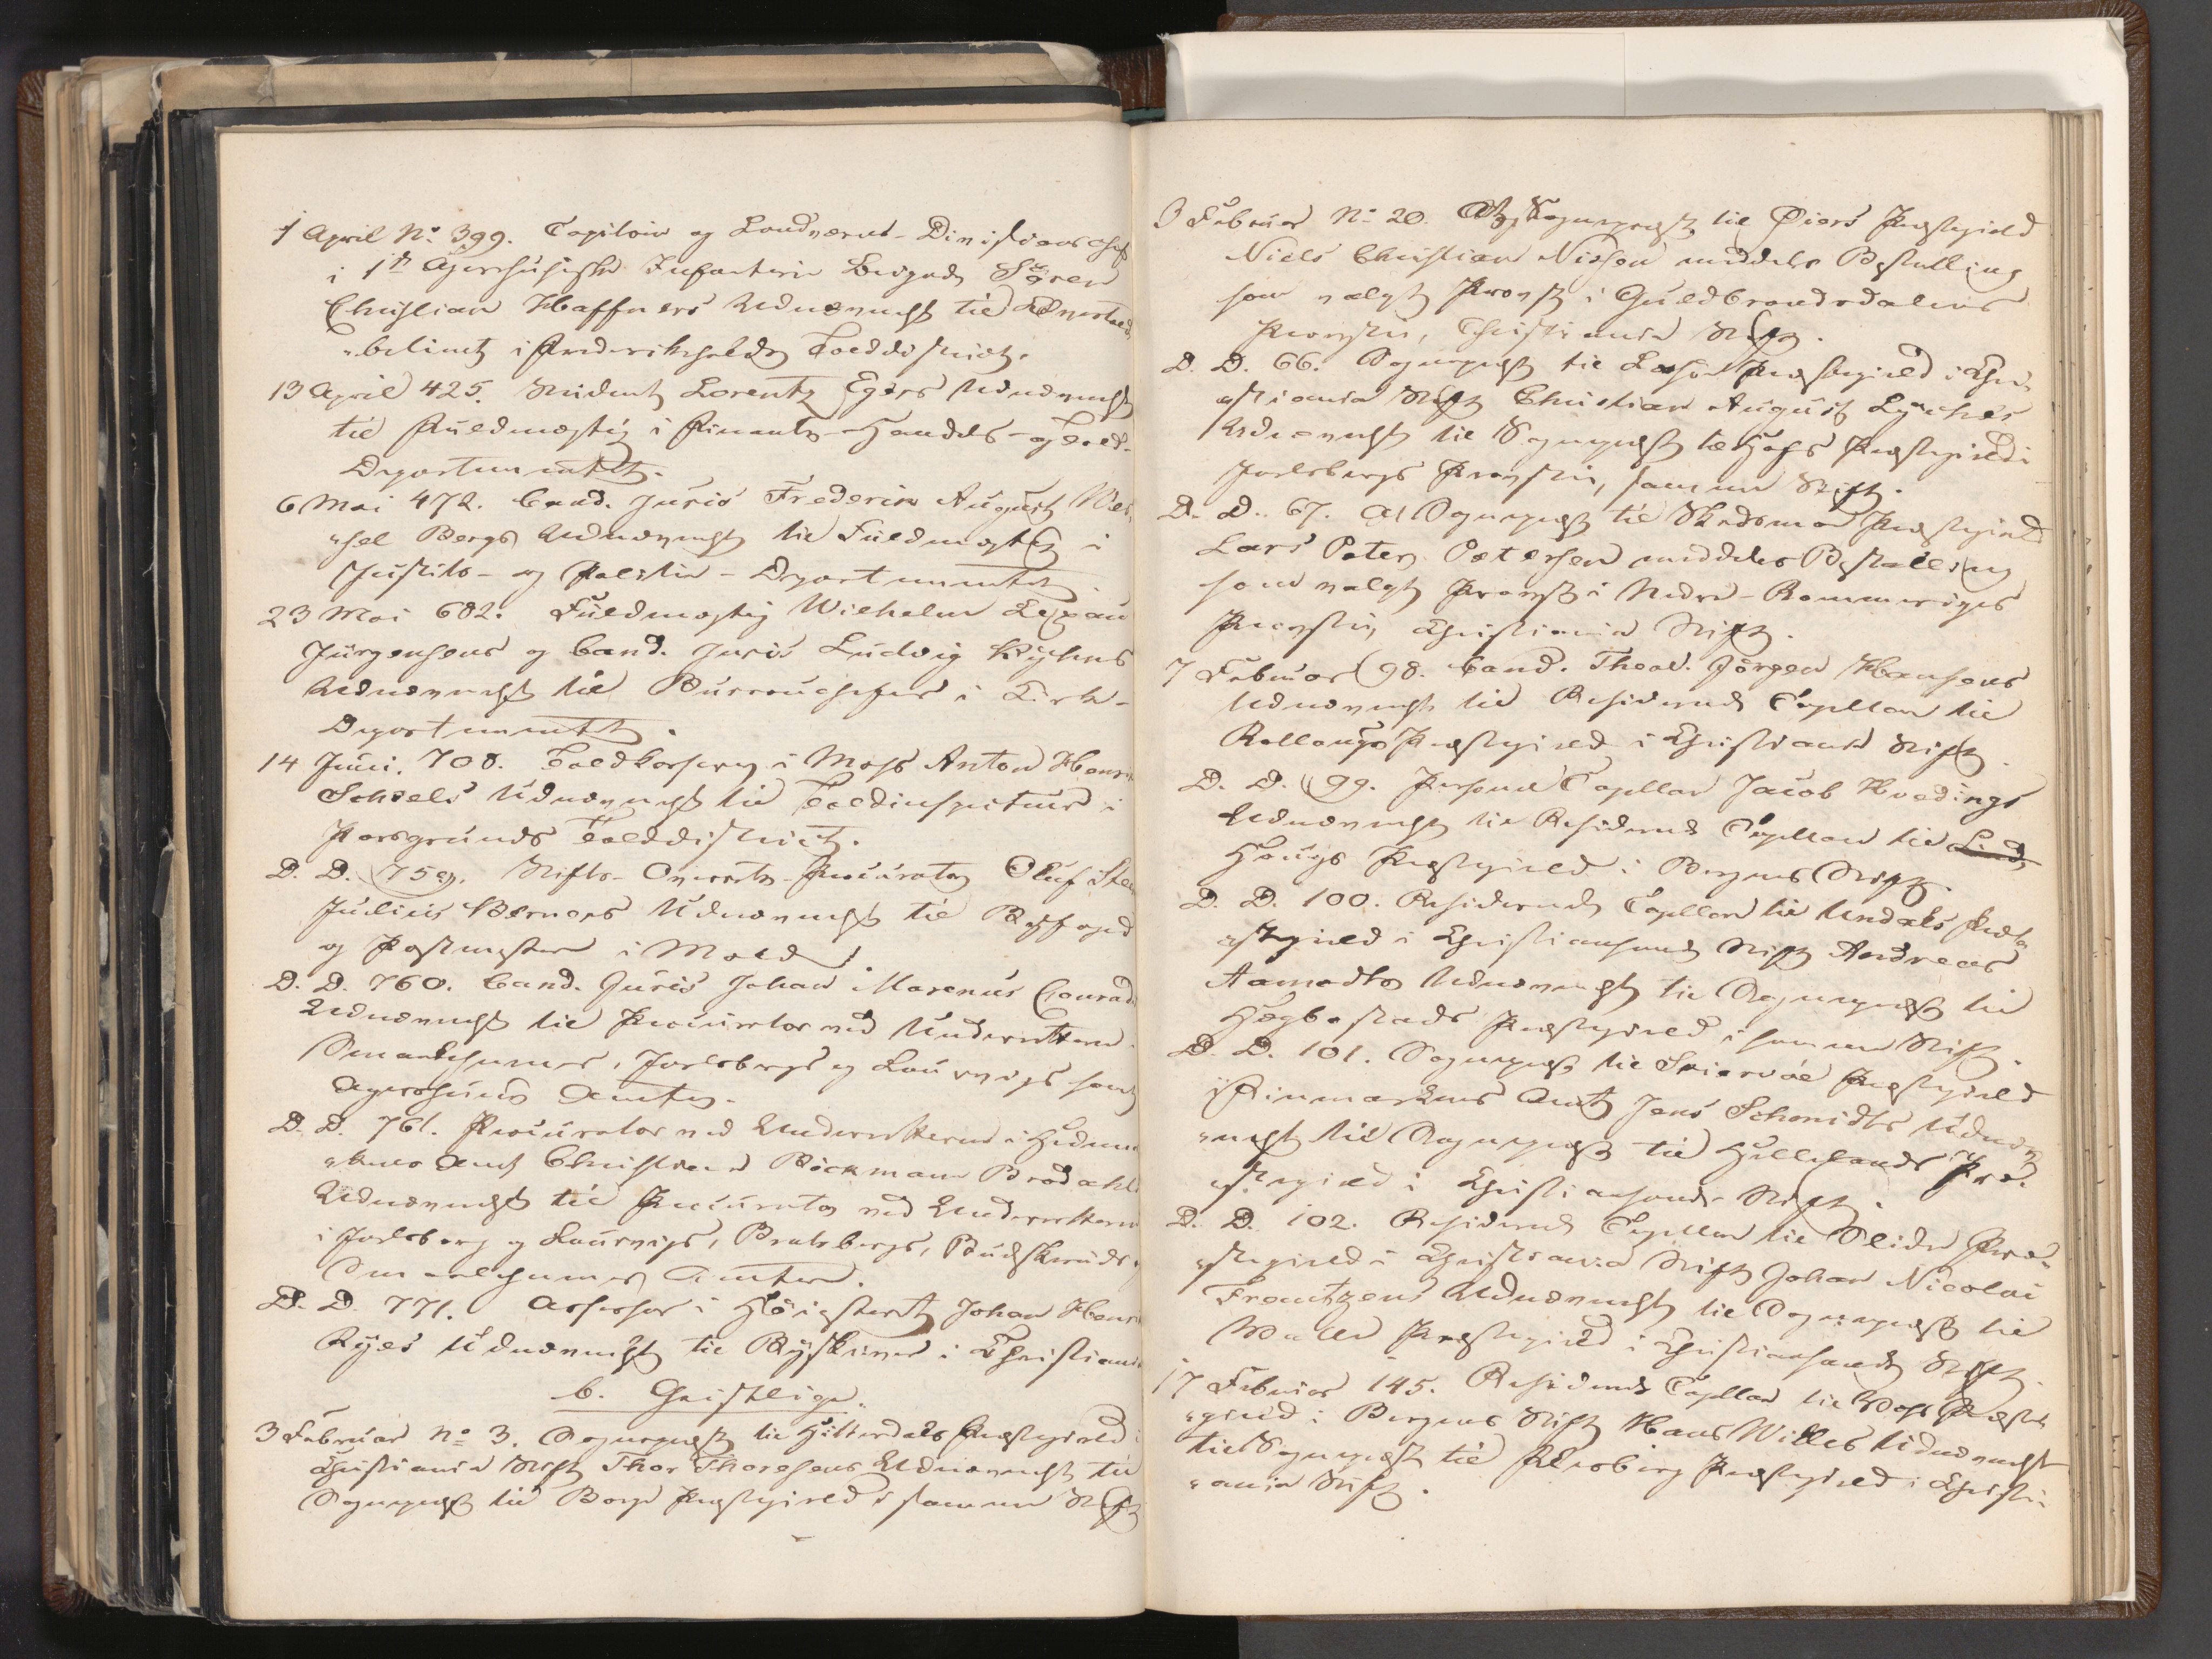 1 April No 399. Capitain og Landværns-Divisionschef
i 1ste Agershuusiske Infanterie Brigade Sören
Christian Haffners Udnævnelse til
-betient i Frederikshalds Tolddistrict.
13 April 425. Student Lorentz Egers Udnævnelse
til Fuldmægtig i Finants-Handels- og Told-
Departementet.
6 Mai 472. Cand. juris Frederik August Wes-
"sel Bergs Udnævnelse til Fuldmægtig i
Justits- og Politie-Departementet.
23 Mai 682. Fuldmægtig Wilhelm Lexau
Jürgensens og Cand. juris Ludvig Kyhns
Udnævnelse til Bureauchefer i Kirke-
Departementet.
14 Juni. 708. Toldkasserer i Moss Anton Henrik
Scheels Udnævnelse til Toldinspecteur i
Porsgrunds Tolddistrict.
D. D. 759. Stifts-Overrets-Procurator Oluf Steen
Julius Berners Udnævnelse til Byfoged
og Postmester i Molde.
D. D. 760. Cand. juris Johan Marenus Conradis
Udnævnelse til Procurator ved Underretterne
Smaalehnenes, Jarlsbergs og Laurvigs samt
Agershuus Amter.
D. D. 761. Procurator ved Underretterne i Hedemar-
"kens Amt Christian Böckmann Brodahls
Udnævnelse til Procurator ved Underretterne
i Jarlsberg og Laurvigs, Bratsbergs, Budskeruds og
Smaalehnenes Amter.
D. D. 771. Assessor i Höiesteret Johan Henrik
Ryes Udnævnelse til Byskriver i Christiania
b. Geistlige.
3 Februar No 3. Sognepræst til Hitterdals Præstegield i
Christiania Stift Thor Thoresens Udnævnelse til
Sognepræst til Borge Præstegield i samme Stift
3 Februar No 20. At Sognepræst til Öiers Præstegield
Niels Christian Nissen meddeles Bestalling
som valgt Provst i Guldbrandsdalens
Provstie, Christiania Stift.
D. D. 66. Sognepræst til Lesje Præstegield i Chri-
"stiania Stift Christian August Lyches
Udnævnelse til Sognepræst til Hofs Præstegield i
Jarlsbergs Provstie, samme Stift.
D. D. 67. At Sognepræst til Skedsmo Præstegield
Lars Peter Petersen meddeles Bestalling
som valgt Provst i Nedre-Rommeriges
Provstie, Christiania Stift.
7 Februar 98. Cand. Theol. Jörgen Hansens
Udnævnelse til Residerende Capellan til
Rollaugs Præstegield i Christiania Stift.
D. D. 99. Personel Capellan Jacob Hvedings
Udnævnelse til Residerende Capellan til
Hougs Præstegield i Bergens Stift.
D. D. 100. Residerende Capellan til Undals Præ-
"stegield i Christiansands Stift Andreas
Aamodts Udnævnelse til Sognepræst til
Hægbostads Præstegield i samme Stift.
D. D. 101. Sognepræst til Skiervöe Præstegield
i Finmarkens Amt Jens Schmidts Udnæv-
"nelse til Sognepræst til Hellelands Præ-
"stegield i Christiansands Stift.
D. D. 102. Residerende Capellan til Slidre Præ-
"stegield i Christiania Stift Johan Nicolai
Frantzens Udnævnelse til Sognepræst til
Valle Præstegield i Christiansands Stift.
17 Februar 145. Residerende Capellan til Voss Præste-
"gield i Bergens Stift Hans Willes Udnævnelse
til Sognepræst til Flesberg Præstegield i Christi-
"ania Stift.